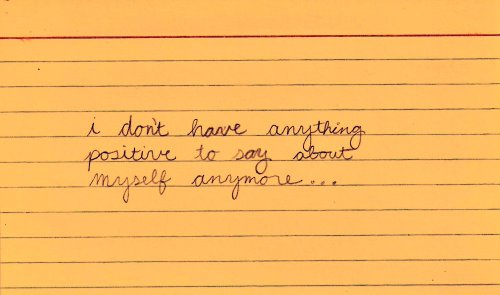 i don't have anything
positive to say about
myself anymore...